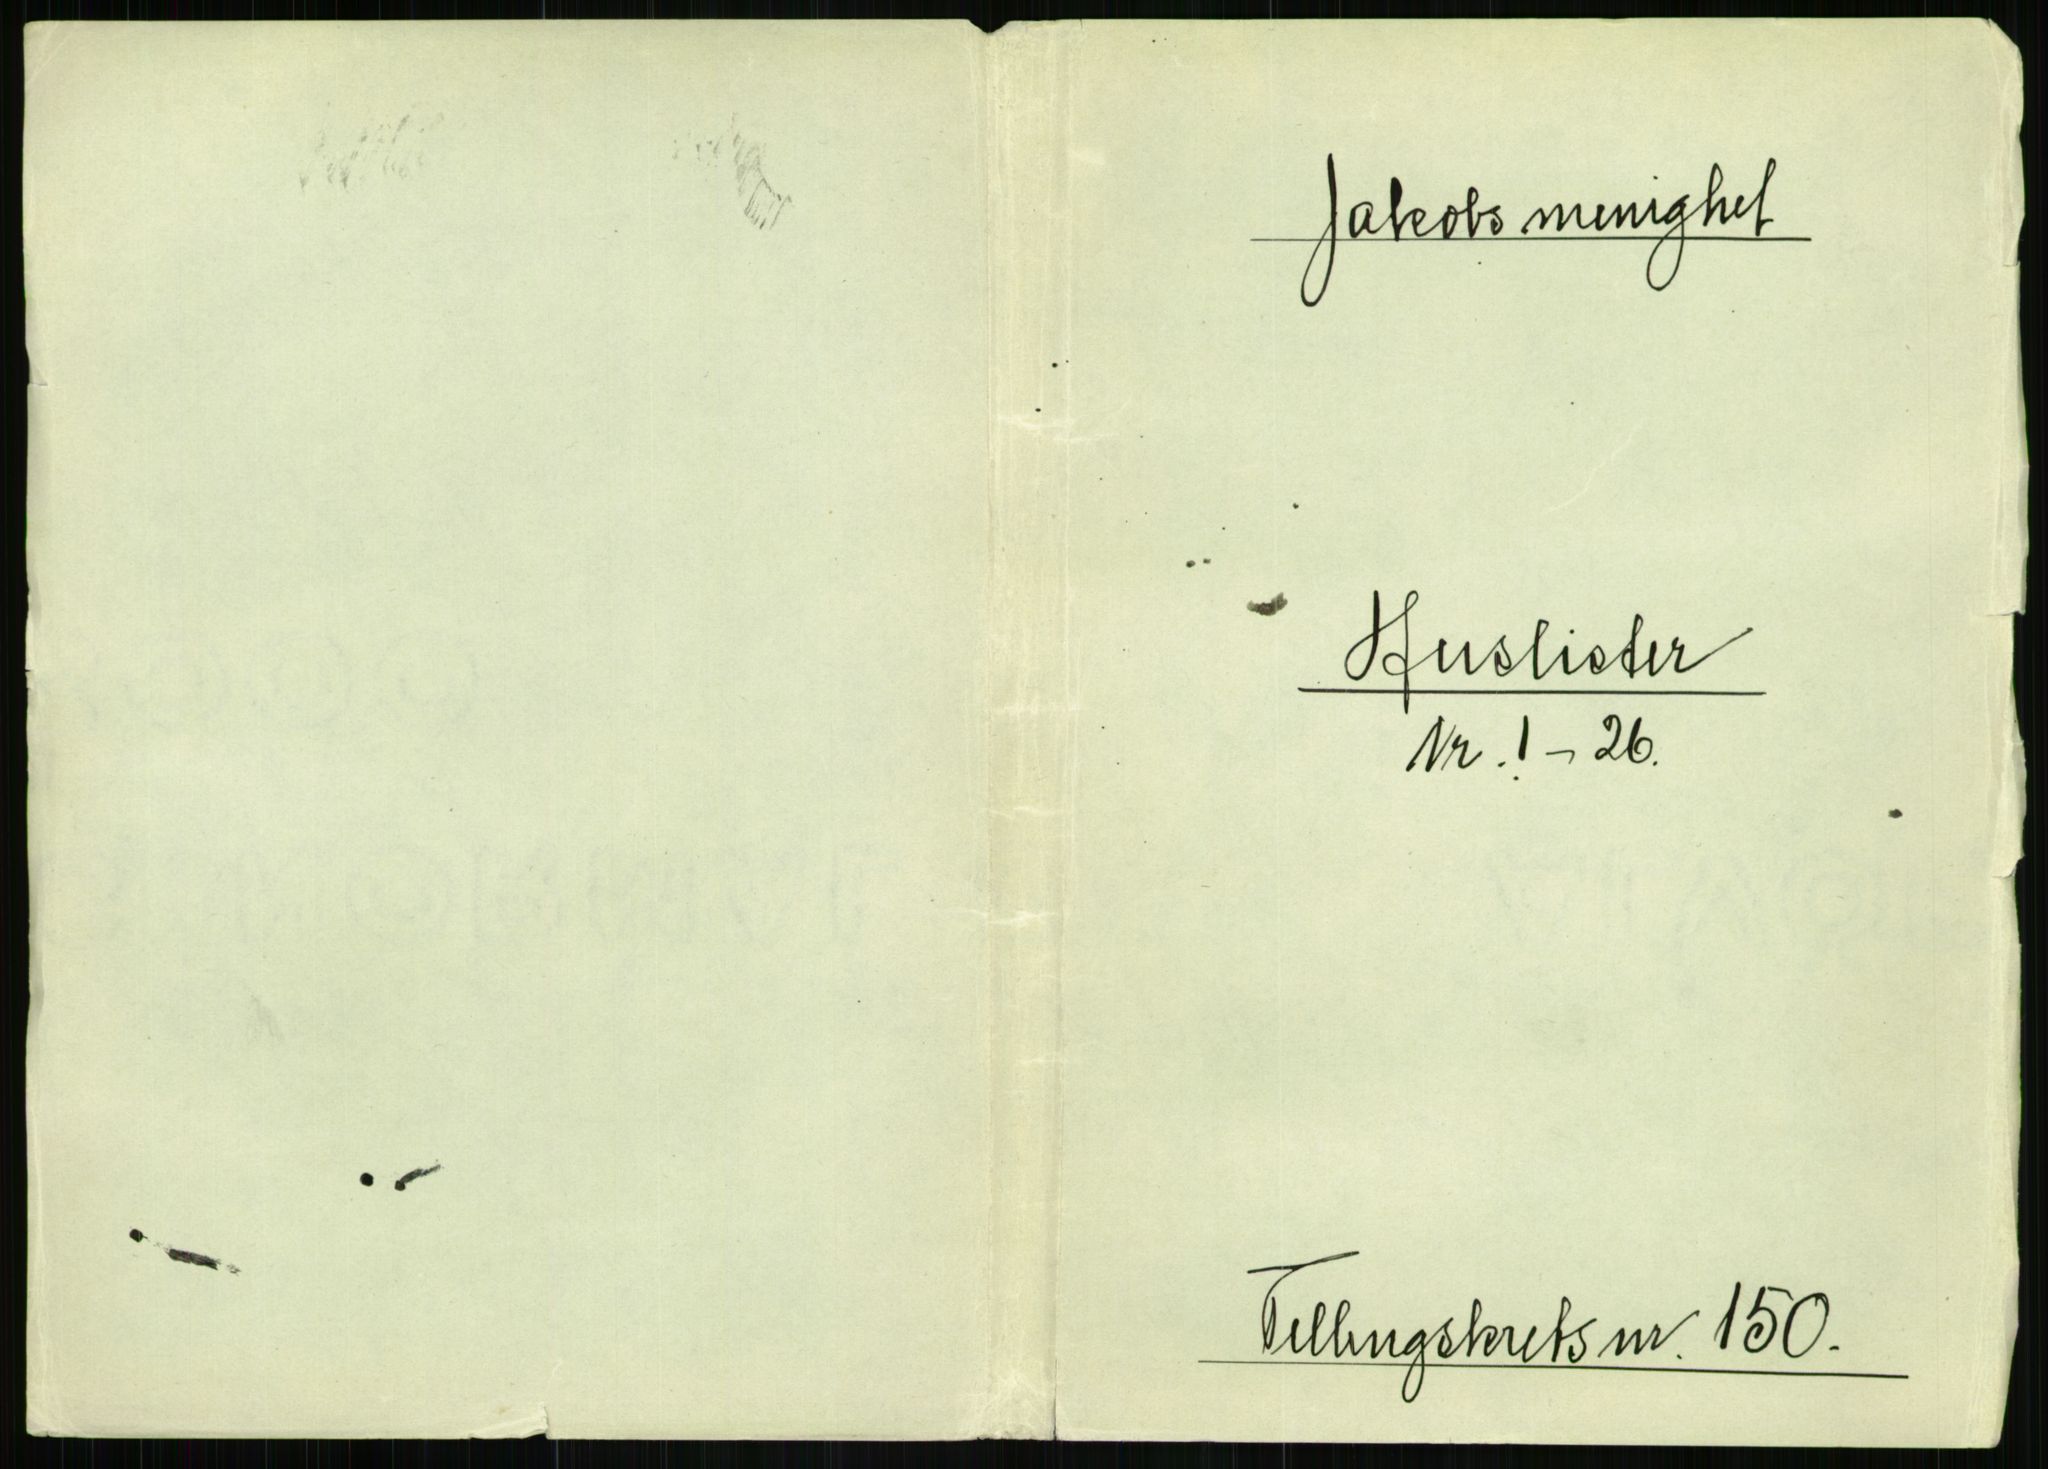 Jakobs menighet
Huslister
Nr. 1 – 26.
Tellingskrets nr. 150.